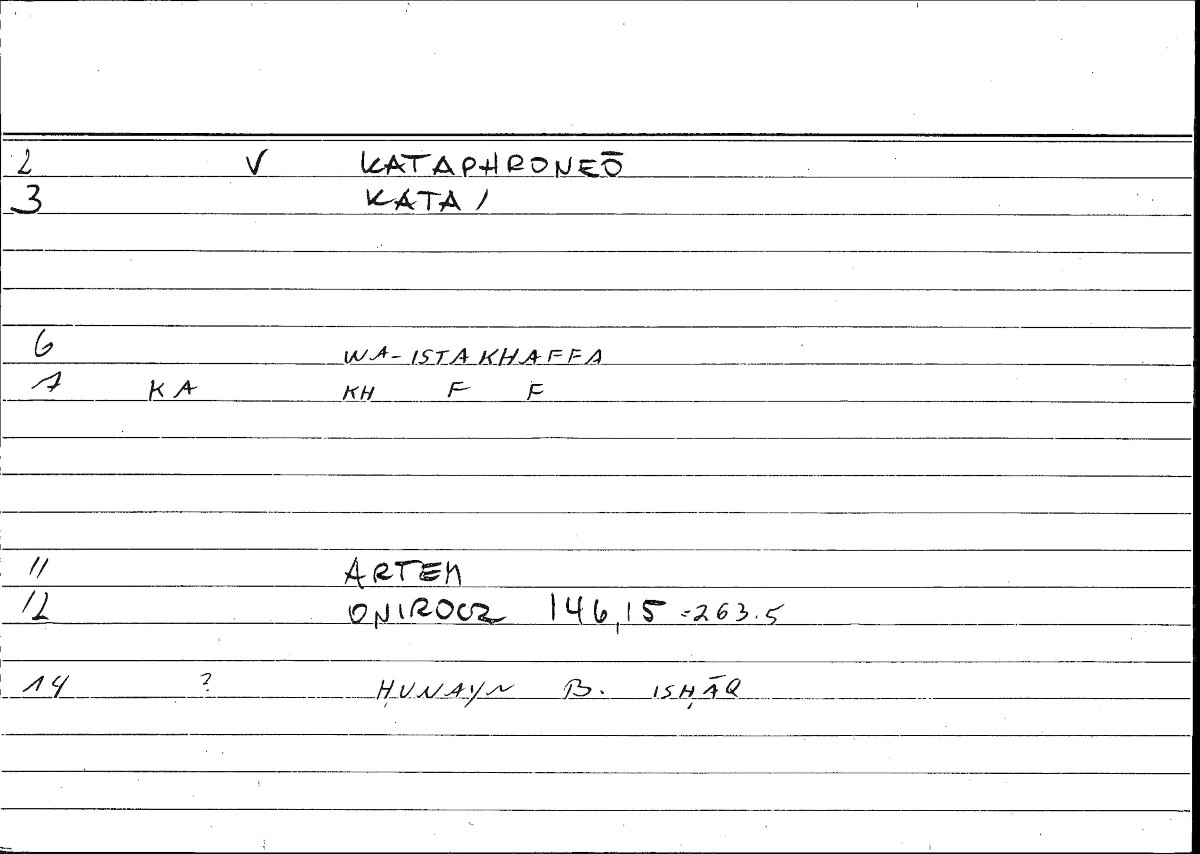 2 V KATAPHRONEŌ
3 KATA /
6 WA-ISTAKHAFFA
7 KA KH F F
11 ARTEM
12 ONIROCR 146,15 =263.5
14 ? ḤUNAYN B. ISḤĀQ